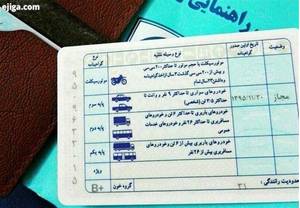 ejiga.com
راهنمایی
نوع وسیله نقلیه
وضعیت
تاریخ اولین صدور گواهینامه
نوع گواهینامه
موتورسیکلت با حجم موتور تا حداکثر ۲۰۰ سی سی
موتورسیکلت
خودروهای سواری تا حداکثر ۹ نفر و وانت تا
حداکثر ۳/۵ تن
پایه سوم
۱۳۹۵/۱۱/۲۰
مجاز
خودروهای باربری تا حداکثر ۶ تن و خودروهای
مسافربری تا حداکثر ۲۶ نفر و خودروهای خدمات
عمومی
پایه دوم
خودروهای باربری بیش از ۶ تن و خودروهای
مسافربری بیش از ۲۶ نفر
پایه یکم
ویژه
محدودیت رانندگی: ۳۱
گروه خون B+